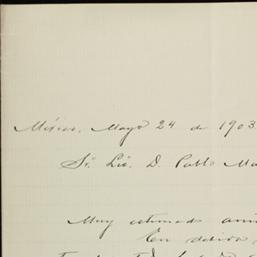 México, Mayo 24 de 1903
Sr. Lic. D. Pablo Ma
Muy estimado ami
En debida